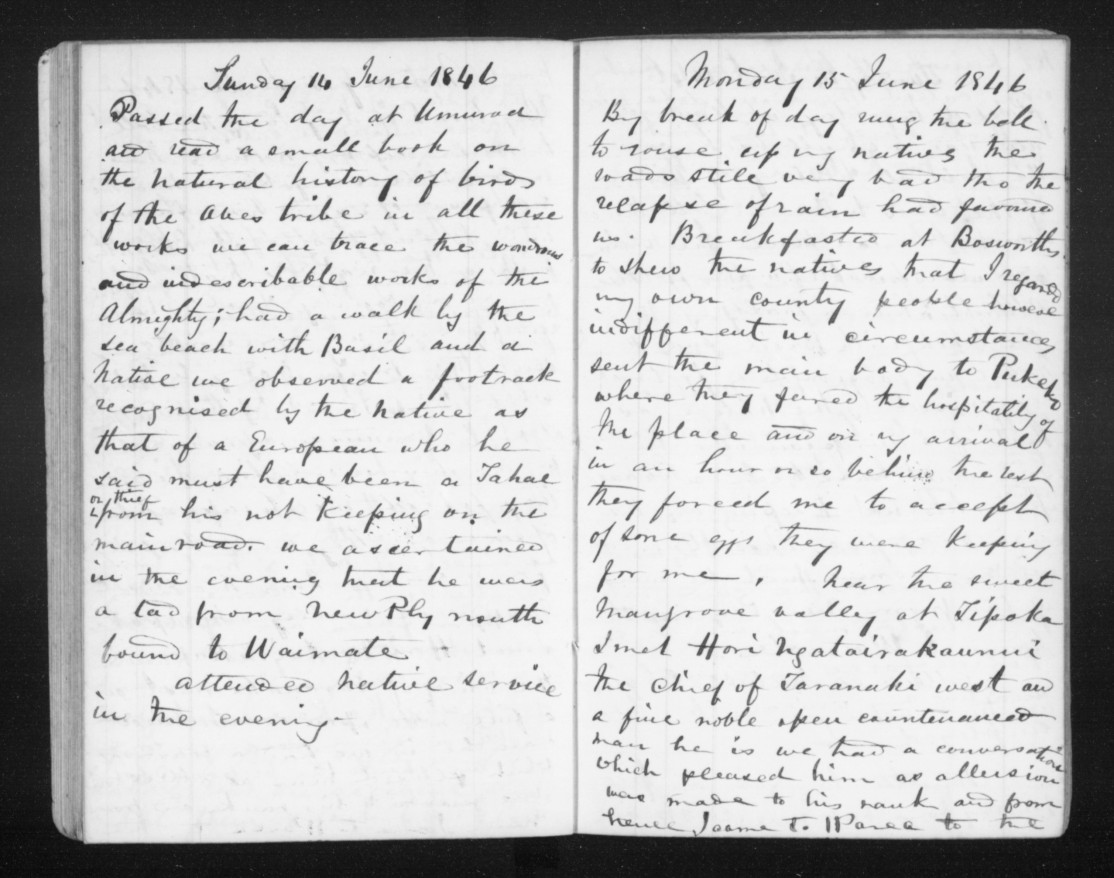 Sunday 14 June 1846
Passed the day at Umuroa
and read a small book on
the natural history of birds
of the Aves tribe in all these
works we can trace the wondrous
and indescribable works of the
Almighty; had a walk by the
sea beach with Basil and a
native we observed a footrack
recognised by the native as
that of a European who he
said must have been a Tahae
or thief
from his not keeping on the
main road. we ascertained
in the evening that he was
a lad from New Plymouth
bound to Waimate
attended native service
in the evening -
Monday 15 June 1846
By break of day rung the bell
to rouse up my natives the
roads still very bad tho the
relapse of rain had favored
us. Breakfasted at Bosworths
to shew the natives that I regard
my own county people however
indifferent in circumstances
sent the main body to
where they fared the hospitality of
the place and on my arrival
in an hour or so behind the rest
they forced me to accept
of some eggs they were keeping
for me. Near the sweet
Mangrove valley at Tipoka
I met Hori Ngatairakaunui
the chief of Taranaki west and
a fine noble open countenanced
man he is we had a conversation
which pleased him as allusion
was made to his rank and from
hence I came to to the